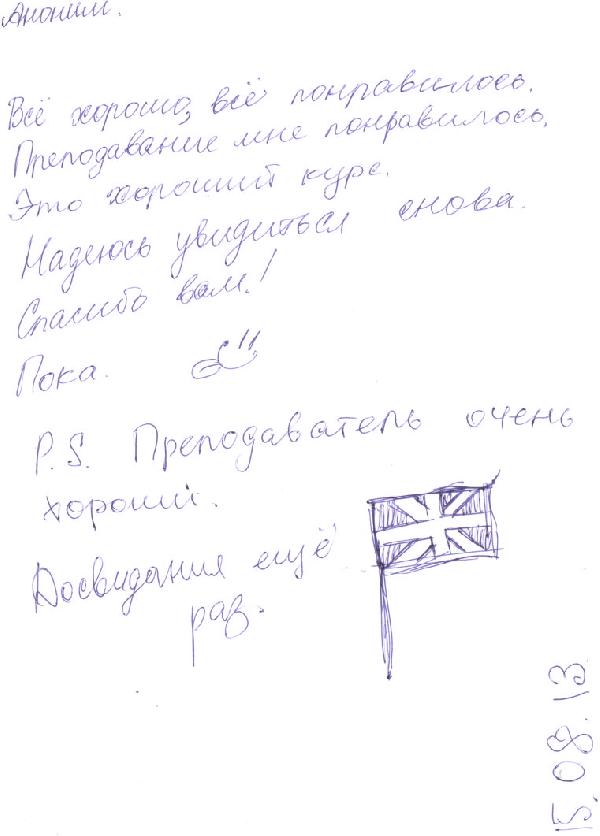 Аноним.
Всё хорошо, всё понравилось.
Преподавание мне понравилось.
Это хороший курс.
Надеюсь увидиться снова.
Спасибо вам!
Пока.
P.S. Преподаватель очень
хороший.
Досвидания ещё
раз.
15.08.13